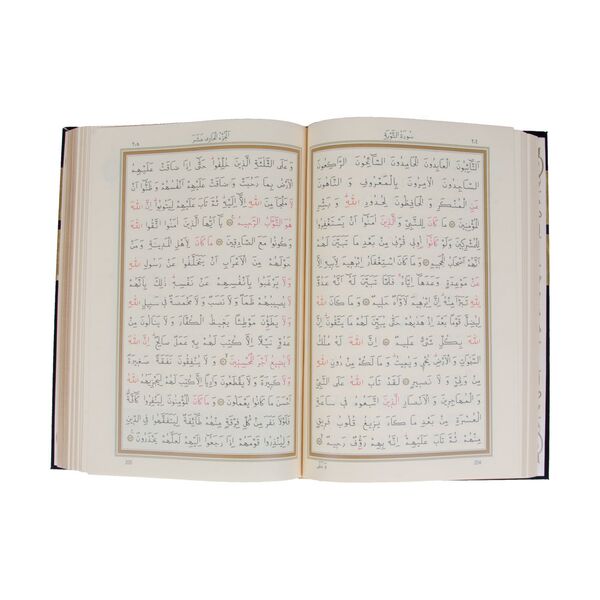 ٢٠٤
سُورَةُ التَّوْبَةِ
اَلتَّائِبُونَ الْعَابِدُونَ الْحَامِدُونَ السَّائِحُونَ الرَّاكِعُونَ
السَّاجِدُونَ الْاٰمِرُونَ بِالْمَعْرُوفِ وَالنَّاهُونَ
عَنِ الْمُنْكَرِ وَالْحَافِظُونَ لِحُدُودِ اللّٰهِ وَبَشِّرِ
الْمُؤْمِنِينَ مَا كَانَ لِلنَّبِيِّ وَالَّذِينَ اٰمَنُوا اَنْ يَسْتَغْفِرُوا
لِلْمُشْرِكِينَ وَلَوْ كَانُوا اُولِي قُرْبٰى مِنْ بَعْدِ مَا تَبَيَّنَ لَهُمْ
اَنَّهُمْ اَصْحَابُ الْجَحِيمِ وَمَا كَانَ اسْتِغْفَارُ اِبْرٰهِيمَ لِاَبِيهِ اِلَّا
عَنْ مَوْعِدَةٍ وَعَدَهَا اِيَّاهُ فَلَمَّا تَبَيَّنَ لَهُ اَنَّهُ عَدُوٌّ
لِلّٰهِ تَبَرَّاَ مِنْهُ اِنَّ اِبْرٰهِيمَ لَاَوَّاهٌ حَلِيمٌ وَمَا كَانَ اللّٰهُ
لِيُضِلَّ قَوْمًا بَعْدَ اِذْ هَدٰيهُمْ حَتّٰى يُبَيِّنَ لَهُمْ مَا يَتَّقُونَ اِنَّ
اللّٰهَ بِكُلِّ شَيْءٍ عَلِيمٌ اِنَّ اللّٰهَ لَهُ مُلْكُ
السَّمٰوَاتِ وَالْاَرْضِ يُحْيِي وَيُمِيتُ وَمَا لَكُمْ مِنْ دُونِ اللّٰهِ
مِنْ وَلِيٍّ وَلَا نَصِيرٍ لَقَدْ تَابَ اللّٰهُ عَلَى النَّبِيِّ
وَالْمُهَاجِرِينَ وَالْاَنْصَارِ الَّذِينَ اتَّبَعُوهُ فِي سَاعَةِ
الْعُسْرَةِ مِنْ بَعْدِ مَا كَادَ يَزِيغُ قُلُوبُ فَرِيقٍ
مِنْهُمْ ثُمَّ تَابَ عَلَيْهِمْ اِنَّهُ بِهِمْ رَؤُفٌ رَحِيمٌ
204
اَلْجُزْءُ الْحَادِى عَشَرَ
٢٠٥
وَعَلَى الثَّلٰثَةِ الَّذِينَ خُلِّفُوا حَتّٰى اِذَا ضَاقَتْ عَلَيْهِمُ
الْاَرْضُ بِمَا رَحُبَتْ وَضَاقَتْ عَلَيْهِمْ اَنْفُسُهُمْ وَظَنُّوا اَنْ
لَا مَلْجَاَ مِنَ اللّٰهِ اِلَّا اِلَيْهِ ثُمَّ تَابَ عَلَيْهِمْ لِيَتُوبُوا اِنَّ اللّٰهَ
هُوَ التَّوَّابُ الرَّحِيمُ يَا اَيُّهَا الَّذِينَ اٰمَنُوا اتَّقُوا اللّٰهَ
وَكُونُوا مَعَ الصَّادِقِينَ مَا كَانَ لِاَهْلِ الْمَدِينَةِ وَمَنْ
حَوْلَهُمْ مِنَ الْاَعْرَابِ اَنْ يَتَخَلَّفُوا عَنْ رَسُولِ اللّٰهِ
وَلَا يَرْغَبُوا بِاَنْفُسِهِمْ عَنْ نَفْسِهِ ذٰلِكَ بِاَنَّهُمْ
لَا يُصِيبُهُمْ ظَمَاٌ وَلَا نَصَبٌ وَلَا مَخْمَصَةٌ فِي سَبِيلِ اللّٰهِ
وَلَا يَطَؤُنَ مَوْطِئًا يَغِيظُ الْكُفَّارَ وَلَا يَنَالُونَ مِنْ
عَدُوٍّ نَيْلًا اِلَّا كُتِبَ لَهُمْ بِهِ عَمَلٌ صَالِحٌ اِنَّ اللّٰهَ
لَا يُضِيعُ اَجْرَ الْمُحْسِنِينَ وَلَا يُنْفِقُونَ نَفَقَةً صَغِيرَةً
وَلَا كَبِيرَةً وَلَا يَقْطَعُونَ وَادِيًا اِلَّا كُتِبَ لَهُمْ لِيَجْزِيَهُمُ اللّٰهُ
اَحْسَنَ مَا كَانُوا يَعْمَلُونَ وَمَا كَانَ الْمُؤْمِنُونَ لِيَنْفِرُوا كَافَّةً
فَلَوْلَا نَفَرَ مِنْ كُلِّ فِرْقَةٍ مِنْهُمْ طَائِفَةٌ لِيَتَفَقَّهُوا فِي الدِّينِ
وَلِيُنْذِرُوا قَوْمَهُمْ اِذَا رَجَعُوا اِلَيْهِمْ لَعَلَّهُمْ يَحْذَرُونَ
205